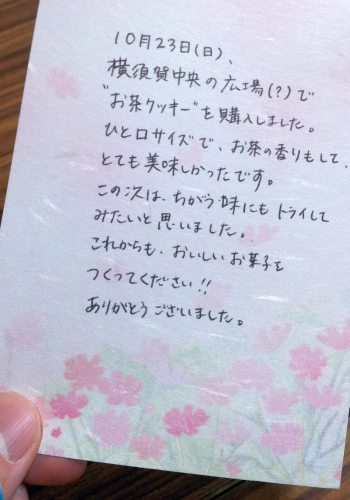 10月23日(日)、
横須賀中央の広場(?)で
"お茶クッキー"を購入しました。
ひと口サイズで、お茶の香りもして、
とても美味しかったです。
この次は、ちがう味にもトライして
みたいと思いました。
これからも、おいしいお菓子を
つくってください!!
ありがとうございました。